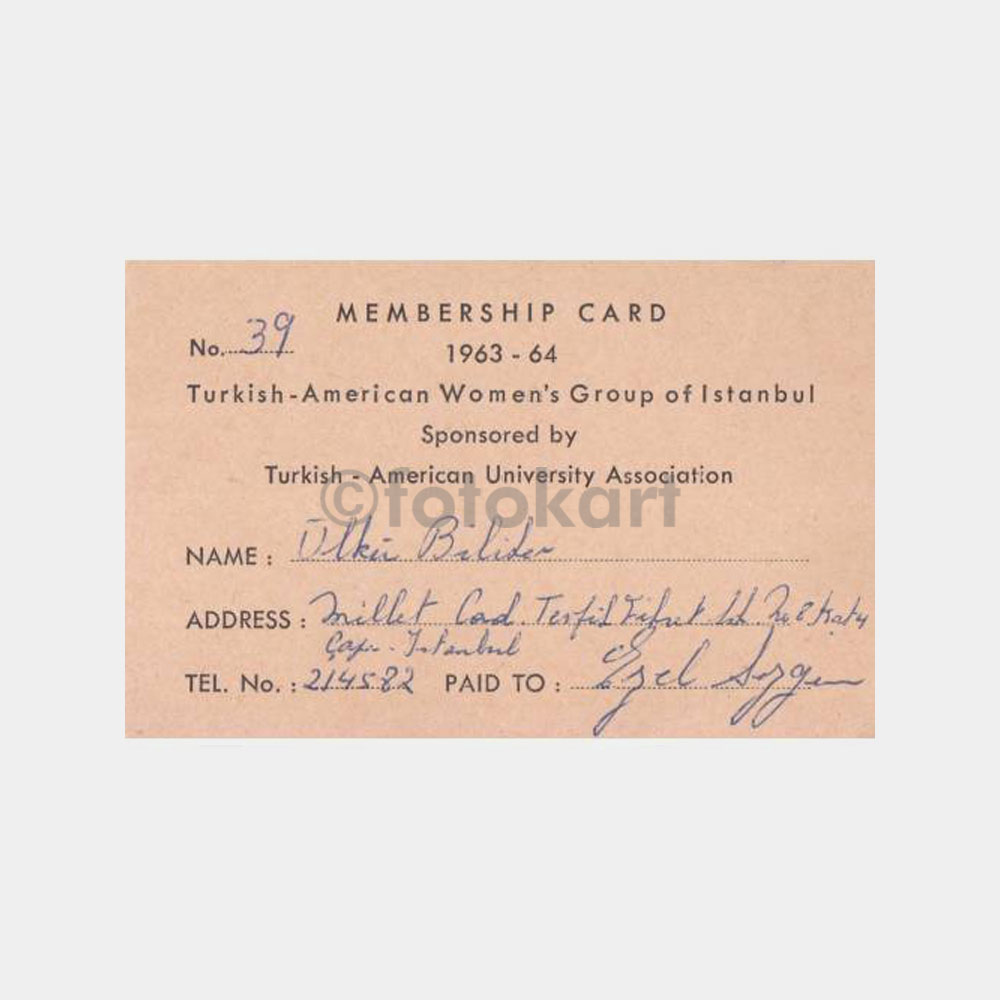 MEMBERSHIP CARD
No. 39
1963 - 64
Turkish-American Women's Group of Istanbul
Sponsored by
Turkish - American University Association
©fotokart
NAME : Ülkü
ADDRESS : Millet Cad.
Çapa - İstanbul
TEL. No. : 214582 PAID TO : Ezel Sezgin